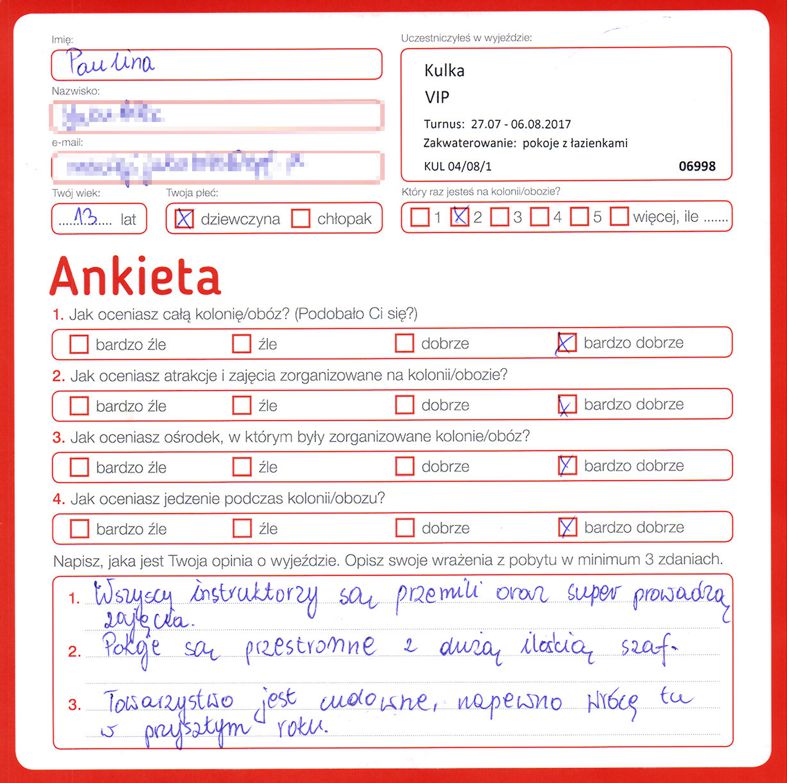 Imię:
Paulina
Uczestniczyłeś w wyjeździe:
Kulka
VIP
Turnus: 27.07 - 06.08.2017
Zakwaterowanie: pokoje z łazienkami
KUL 04/08/1 06998
Nazwisko:
e-mail:
Twój wiek:
13 lat
Twoja płeć:
dziewczyna chłopak
Który raz jesteś na kolonii/obozie?
1 2 3 4 5 więcej, ile .......
Ankieta
1. Jak oceniasz całą kolonię/obóz? (Podobało Ci się?)
bardzo źle źle dobrze bardzo dobrze
2. Jak oceniasz atrakcje i zajęcia zorganizowane na kolonii/obozie?
bardzo źle źle dobrze bardzo dobrze
3. Jak oceniasz ośrodek, w którym były zorganizowane kolonie/obóz?
bardzo źle źle dobrze bardzo dobrze
4. Jak oceniasz jedzenie podczas kolonii/obozu?
bardzo źle źle dobrze bardzo dobrze
Napisz, jaka jest Twoja opinia o wyjeździe. Opisz swoje wrażenia z pobytu w minimum 3 zdaniach.
1. Wszyscy instruktorzy są przemili oraz super prowadzą
zajęcia.
2. Pokoje są przestronne z dużą ilością szaf.
3. Towarzystwo jest cudowne, napewno wrócę tu
w przyszłym roku.